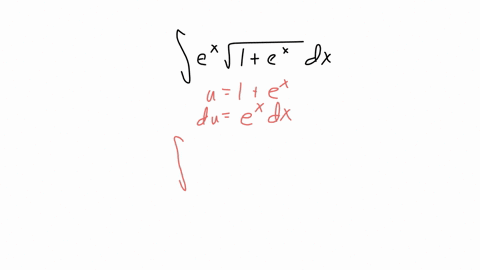 ∫ e^x √(1 + e^x) dx
u = 1 + e^x
du = e^x dx
∫